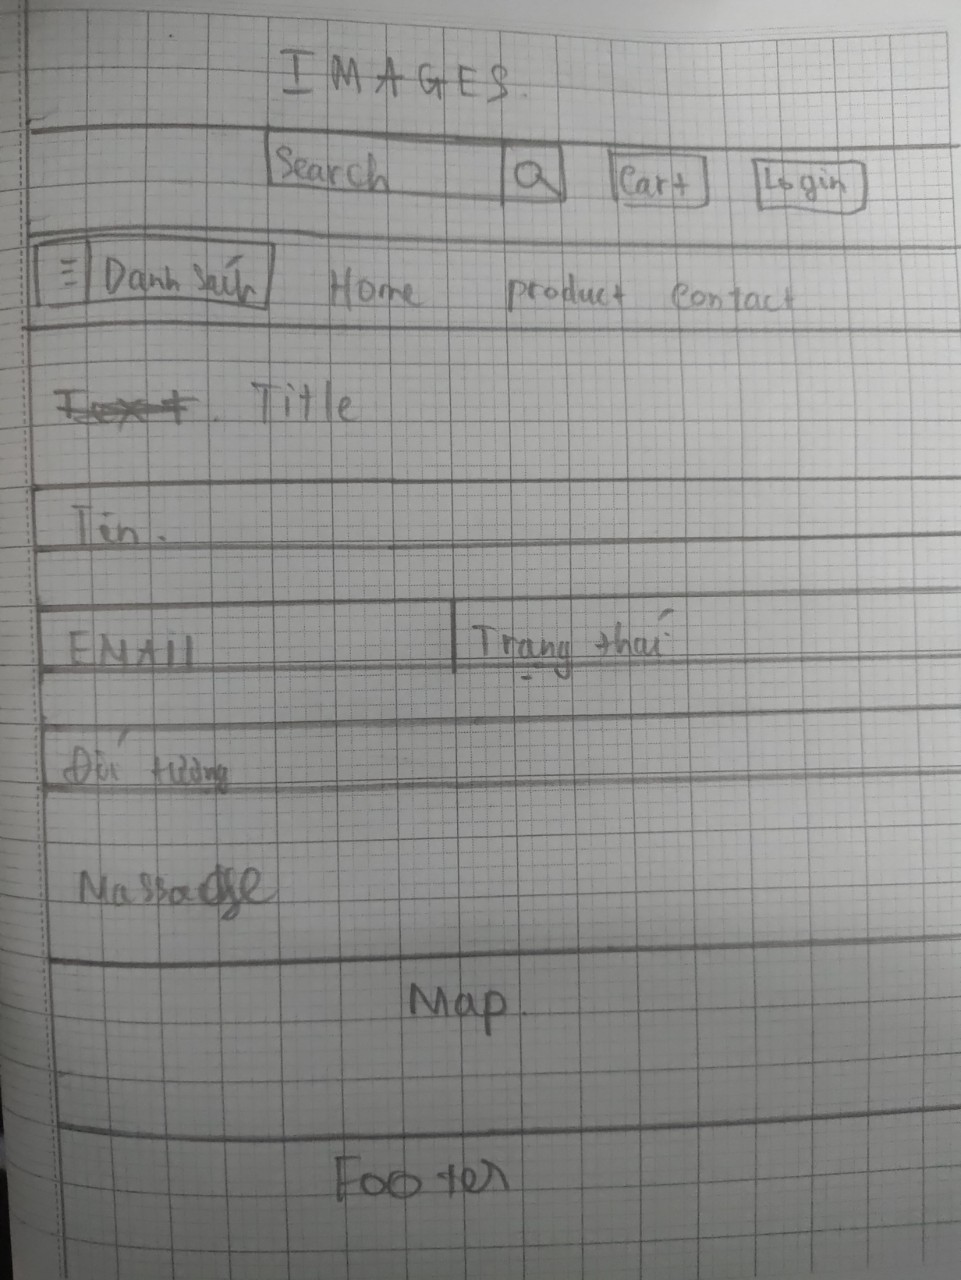 IMAGES.
Search Cart Login
Danh Sách Home product Contact
Text. Title
Tên.
EMAil
Trạng thái
Đối tượng
Massadge
Map
Footer